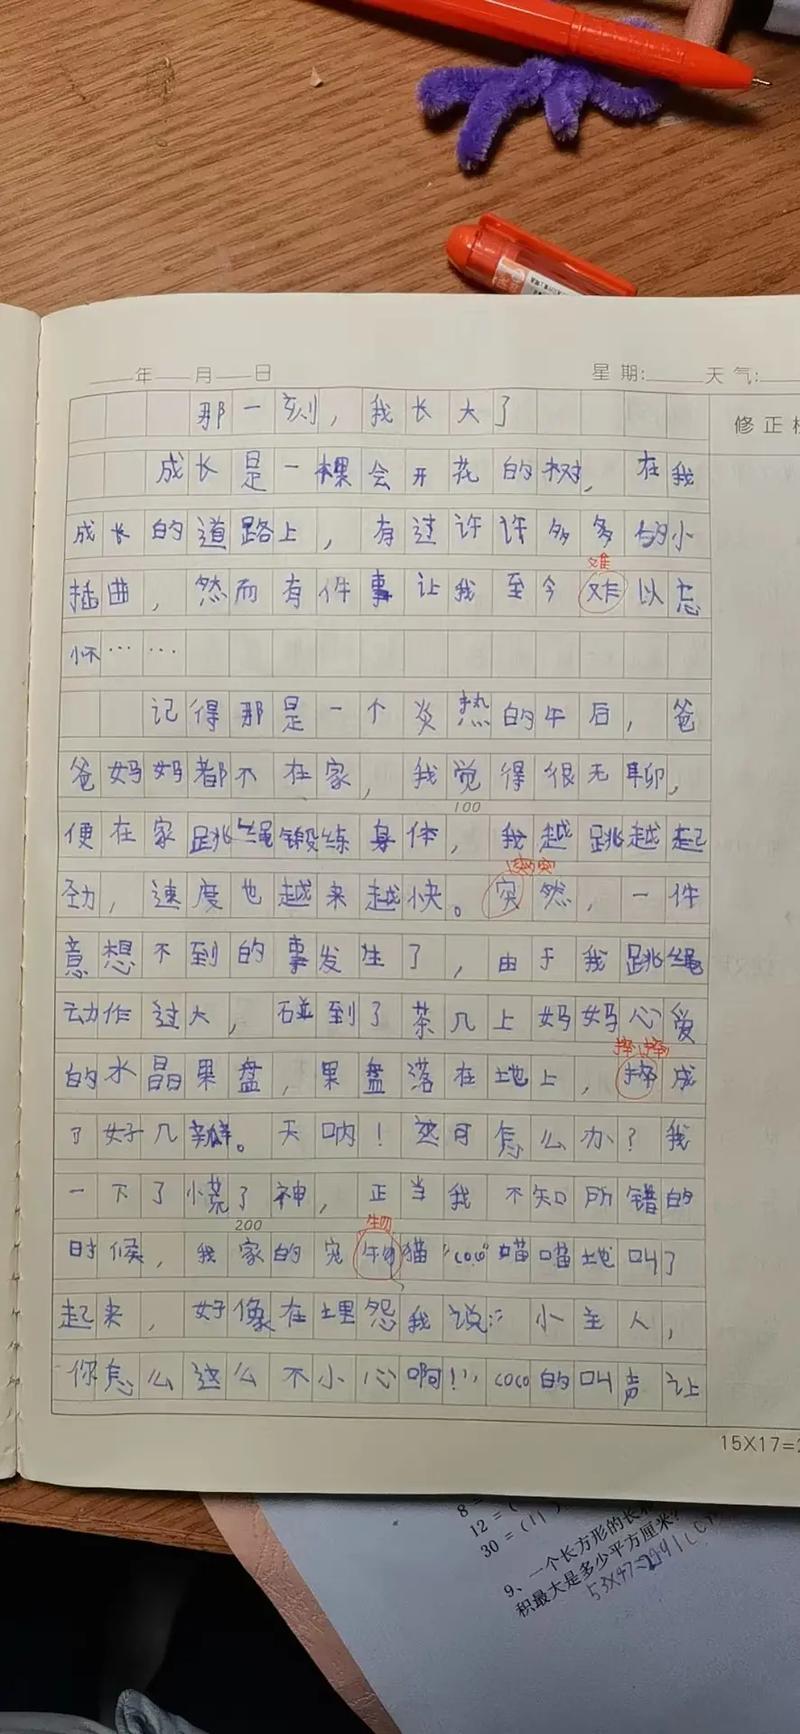 年 月 日 星期: 天气:
那一刻，我长大了
修正
成长是一棵会开花的树，在我
成长的道路上，有过许许多多的小
难
插曲，然而有件事让我至今难以忘
怀……
记得那是一个炎热的午后，爸
爸妈妈都不在家，我觉得很无聊，
100
便在家跳绳锻练身体，我越跳越起
突突
劲，速度也越来越快。突然，一件
意想不到的事发生了，由于我跳绳
动作过大，碰到了茶几上妈妈心爱
摔摔
的水晶果盘，果盘落在地上，摔成
了好几瓣。天呐！这可怎么办？我
一下了慌了神，正当我不知所错的
200
物
时候，我家的宠物猫"coco"喵喵地叫了
起来，好像在埋怨我说："小主人，
你怎么这么不小心啊！"，coco的叫声让
15X17=2
8=
12=(
30=(11)
9、一个长方形的长
积最大是多少平方厘米?